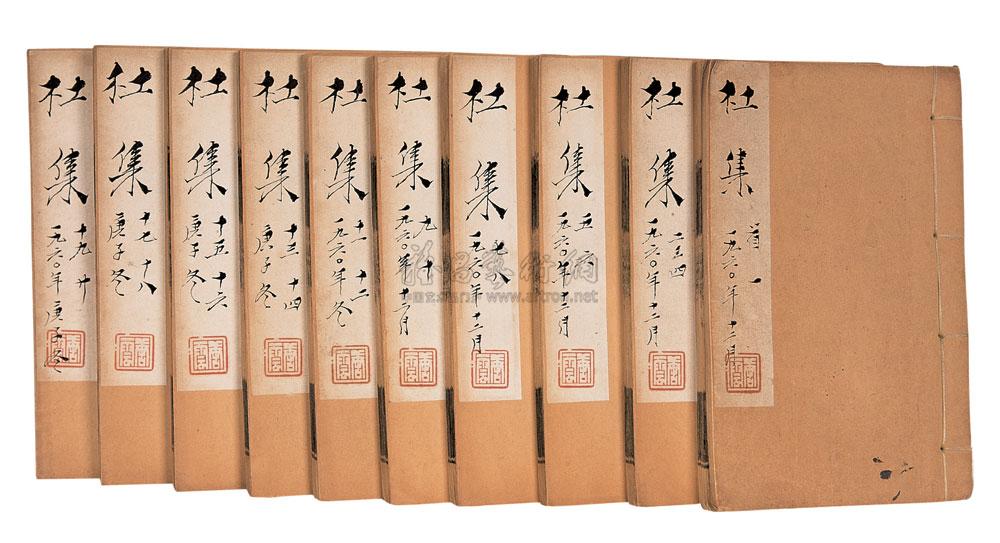 杜集 首 一
一九六〇年十二月
杜集 二三四
一九六〇年十二月
杜集 五 六
一九六〇年十二月
杜集 七 八
一九六〇年十二月
杜集 九 十
一九六〇年十二月
杜集 十一 十二
一九六〇年冬
杜集 十三 十四
庚子冬
杜集 十五 十六
庚子冬
杜集 十七 十八
庚子冬
杜集 十九 廿
一九六〇年 庚子冬
雅昌藝術網
www.artron.net